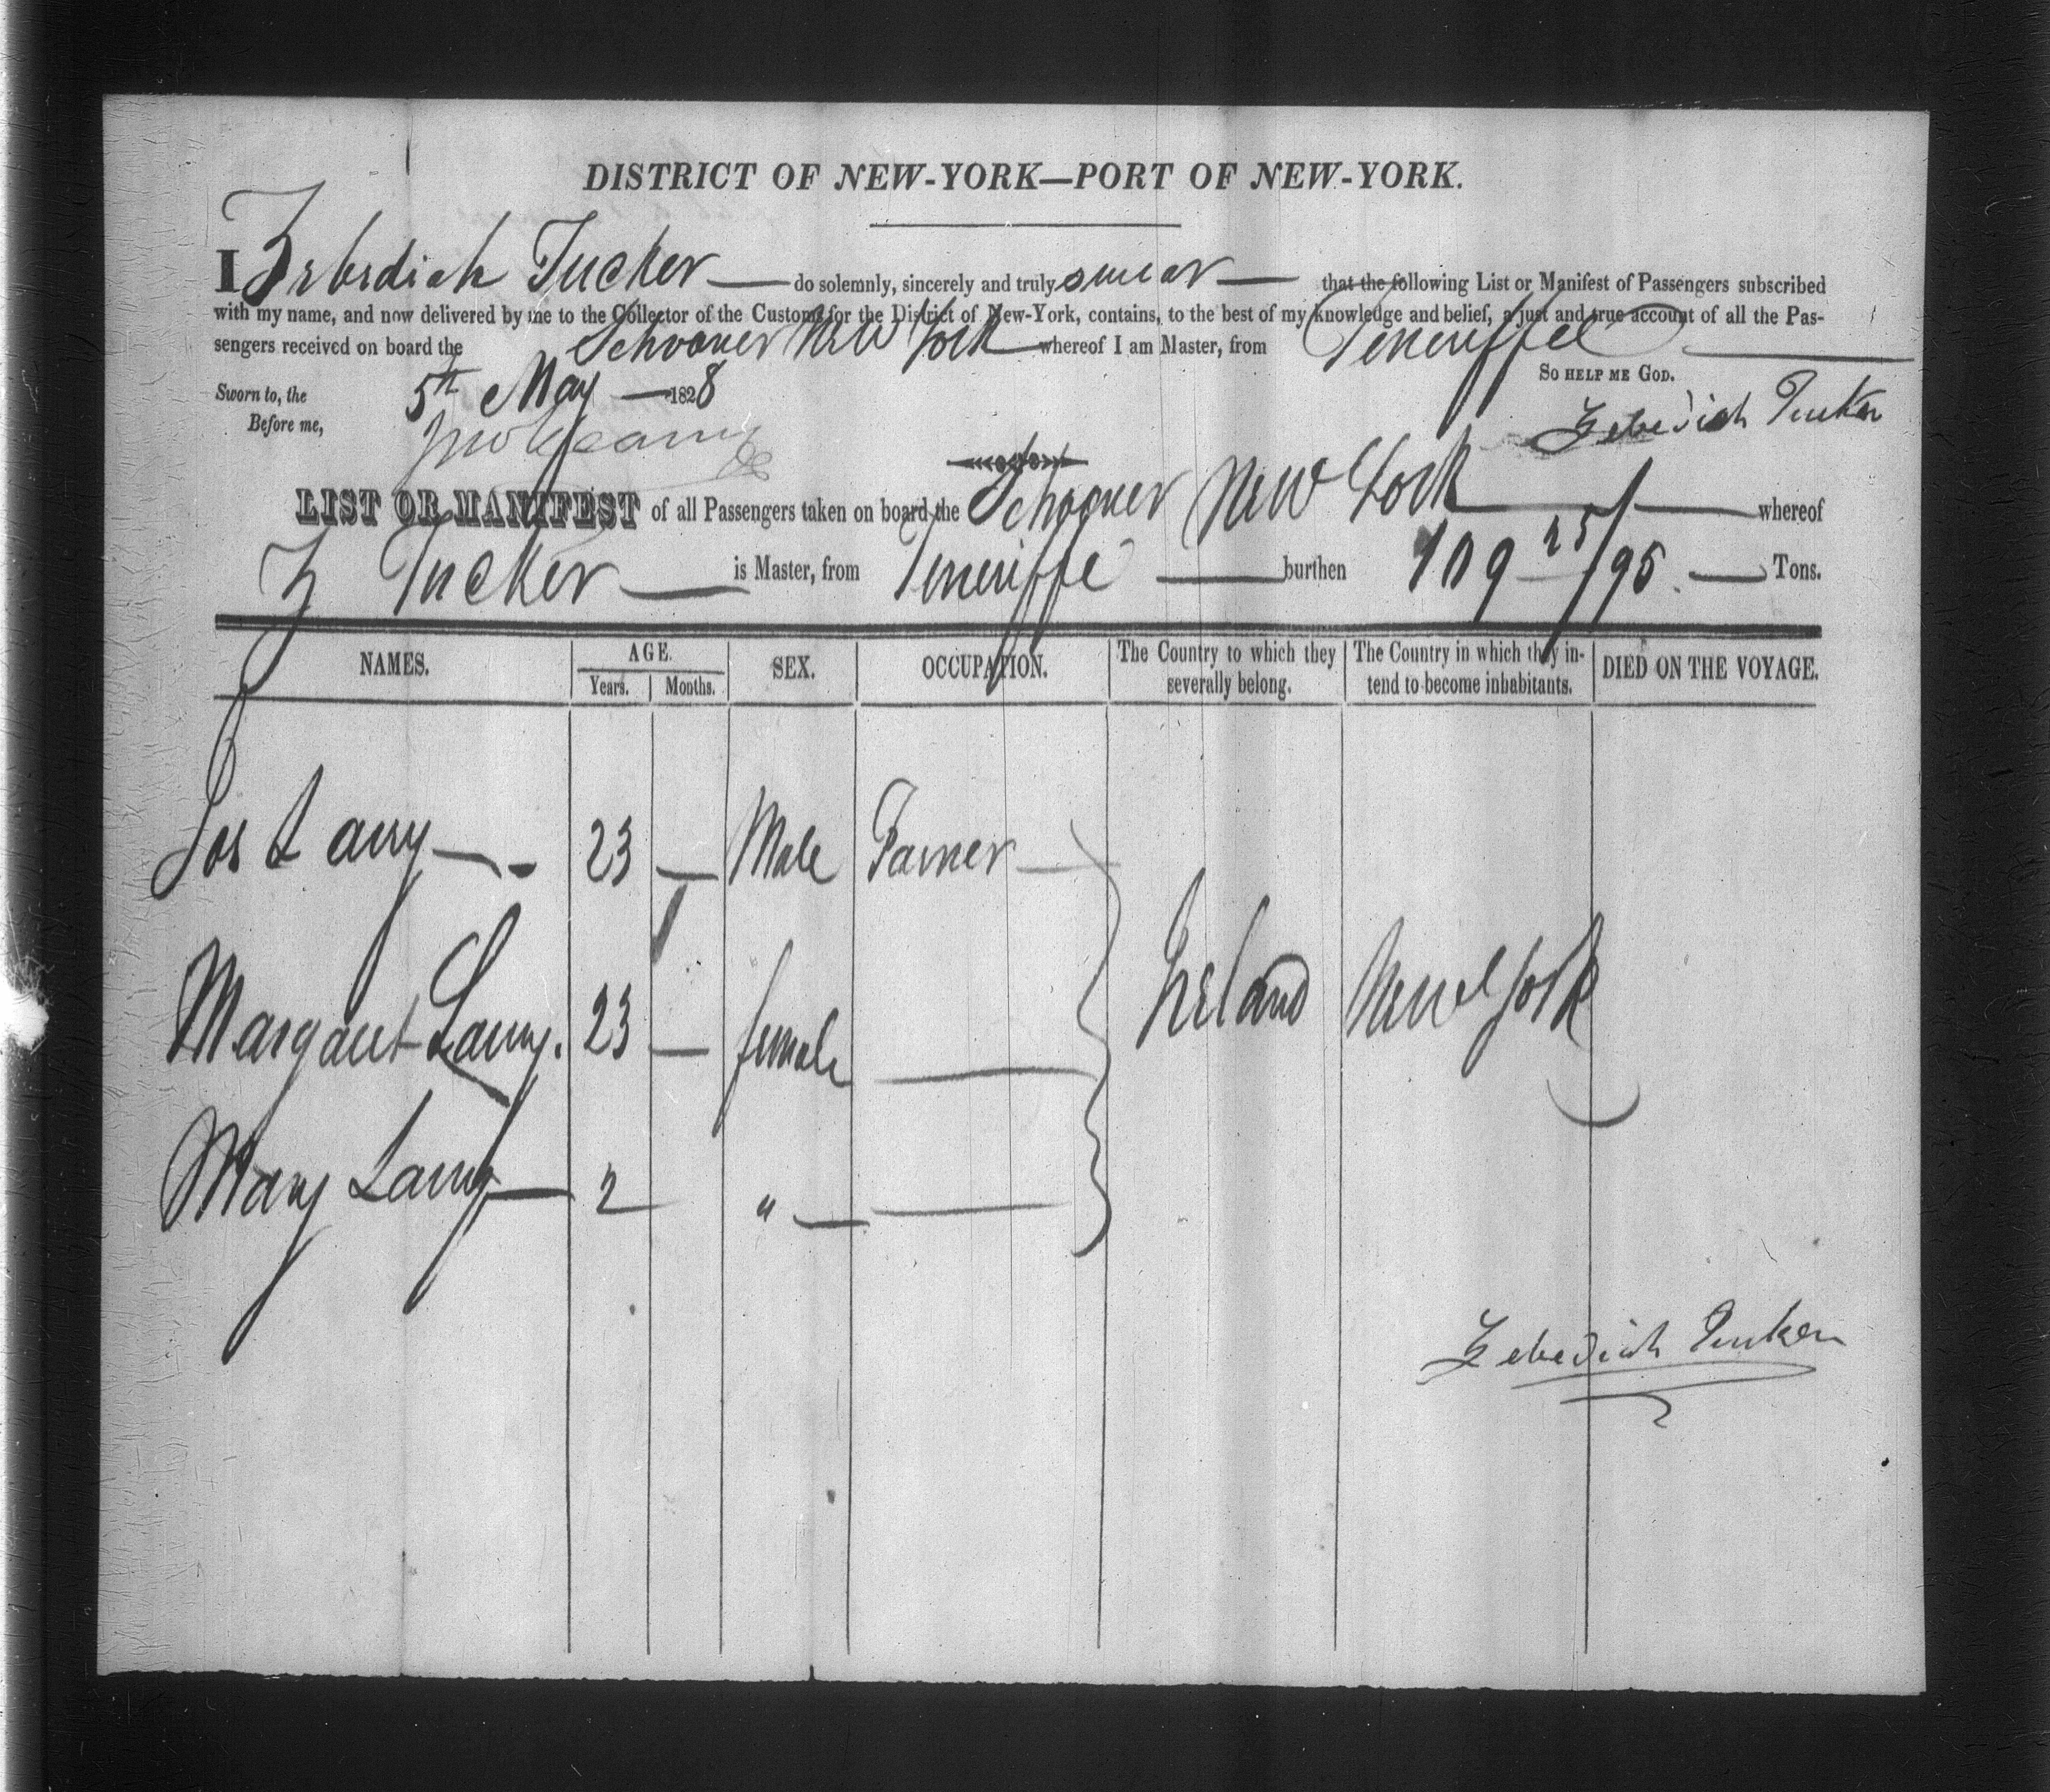 DISTRICT OF NEW-YORK—PORT OF NEW-YORK.
I Zebediah Tucker — do solemnly, sincerely and truly swear — that the following List or Manifest of Passengers subscribed
with my name, and now delivered by me to the Collector of the Customs for the District of New-York, contains, to the best of my knowledge and belief, a just and true account of all the Pas-
sengers received on board the Schooner New York whereof I am Master, from Teneriffe
So HELP ME GOD.
Sworn to, the 5th May — 1828
Before me,
Zebediah Tucker
LIST OR MANIFEST of all Passengers taken on board the Schooner New York — whereof
Z Tucker — is Master, from Teneriffe — burthen 109 25/95 — Tons.
NAMES. AGE. Years. Months. SEX. OCCUPATION. The Country to which they severally belong. The Country in which they in-tend to become inhabitants. DIED ON THE VOYAGE.
Jos 23 — Male Farmer —
Margaret 23 — female —
Ireland New York
Mary 2 " — —
Zebediah Tucker